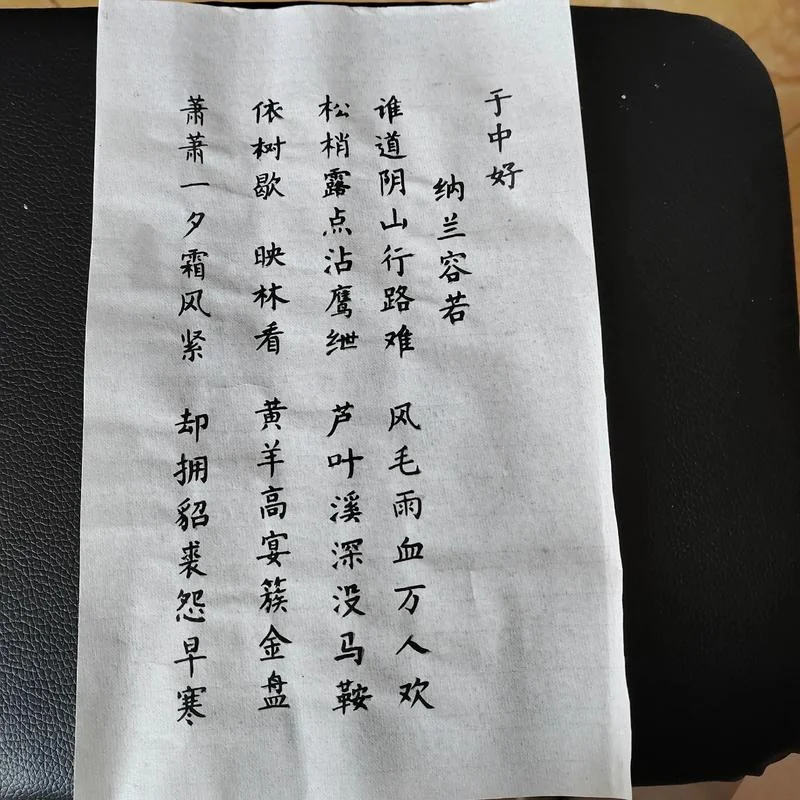 于中好
纳兰容若
谁道阴山行路难 风毛雨血万人欢
松梢露点沾鹰绁 芦叶溪深没马鞍
依树歇 映林看 黄羊高宴簇金盘
萧萧一夕霜风紧 却拥貂裘怨早寒